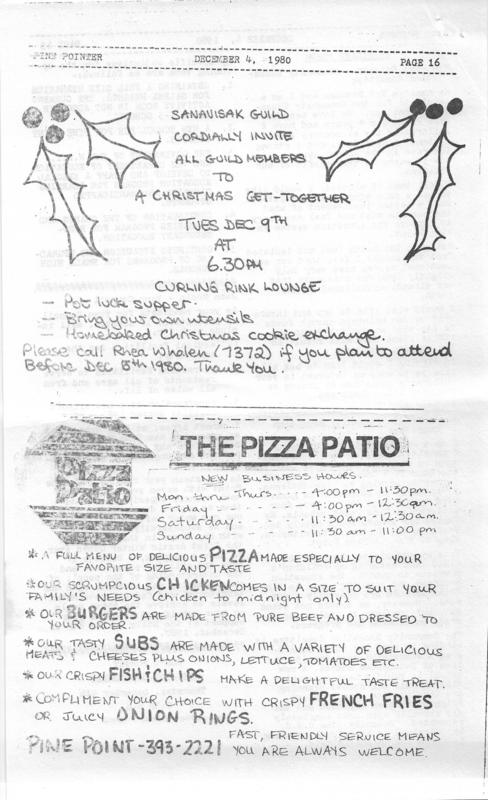 PINE POINTER DECEMBER 4, 1980 PAGE 16
SANAVISAK GUILD
CORDIALLY INVITE
ALL GUILD MEMBERS
TO
A CHRISTMAS GET-TOGETHER
TUES DEC 9TH
AT
6.30PM
CURLING RINK LOUNGE
- Pot luck supper.
- Bring your own utensils
- Homebaked Christmas cookie exchange.
Please call Rhea Whalen (7372) if you plan to attend
Before Dec 8th 1980. Thank You.
Pizza
Patio
THE PIZZA PATIO
NEW BUSINESS HOURS.
Mon. thru Thurs. - - - - 4:00pm - 11:30pm.
Friday - - - - - - - 4:00pm - 12:30am.
Saturday - - - - - 11:30am - 12:30a.m.
Sunday - - - - - - 11:30am - 11:00pm
* A FULL MENU OF DELICIOUS PIZZA MADE ESPECIALLY TO YOUR
FAVORITE SIZE AND TASTE
* OUR SCRUMPCIOUS CHICKEN COMES IN A SIZE TO SUIT YOUR
FAMILY'S NEEDS (chicken to midnight only)
* OUR BURGERS ARE MADE FROM PURE BEEF AND DRESSED TO
YOUR ORDER.
* OUR TASTY SUBS ARE MADE WITH A VARIETY OF DELICIOUS
MEATS & CHEESES PLUS ONIONS, LETTUCE, TOMATOES ETC.
* OUR CRISPY FISH & CHIPS MAKE A DELIGHTFUL TASTE TREAT.
* COMPLIMENT YOUR CHOICE WITH CRISPY FRENCH FRIES
OR JUICY ONION RINGS.
FAST, FRIENDLY SERVICE MEANS
PINE POINT-393-2221 YOU ARE ALWAYS WELCOME.